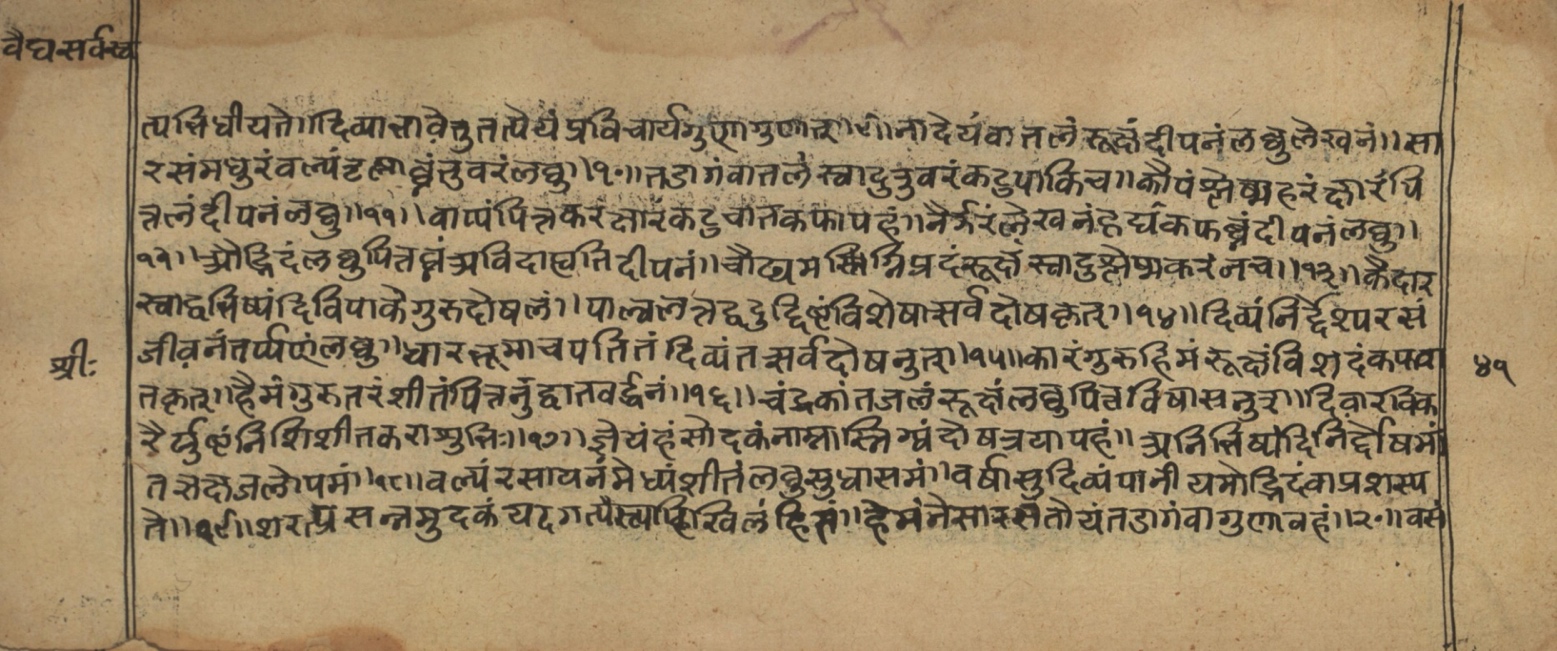 वैद्यसर्वस्व
त्पभिधीयते॥दिव्याभावेतुतत्पेयंप्रविचार्यगुणागुणान्॥९॥नादेयंवातलंरूक्षंदीपनंलघुलेखनं॥सा
रसंमधुरंबल्यंतृष्णाघ्नंतुवरंलघु॥१०॥तडागंवातलंस्वादुतुवरंकटुपाकिच॥कौपंश्लेष्महरंक्षारंपि
त्तलंदीपनंलघु॥११॥वाप्यंपित्तकरंक्षारंकटुवातकफापहं॥नैर्झरंलेखनंहृद्यंकफघ्नंदीपनंलघु॥
१२॥औद्भिदंलघुपित्तघ्नंअविदाह्यतिदीपनं॥चौढ्यमग्निप्रदंरूक्षंस्वादुश्लेष्मकरंनच॥१३॥कैदारं
स्वाद्वभिष्यंदिविपाकेगुरुदोषलं॥पाल्वलंतद्वदुद्दिष्टंविशेषात्सर्वदोषकृत्॥१४॥दिव्यंनिर्द्देश्परसं
जीवनंतर्प्पणंलघु॥धारभूमावपतितंदिव्यंतत्सर्वदोषनुत्॥१५॥कारंगुरुहिमंरूक्षंविशदंकफवा
तकृत्॥हैमंगुरुतरंशीतंपित्तनुद्वातवर्द्धनं॥१६॥चंद्रकांतजलंरूक्षंलघुपित्तविषास्रनुत्॥दिवारविक
रैर्घुष्टंनिशिशीतकराशुभिः॥१७॥ज्ञेयंहंसोदकंनाम्नास्निग्धंदोषत्रयापहं॥अनभिष्यंदिनिर्द्दोषमां
तरीक्षजलोपमं॥१८॥बल्यंरसायनंमेध्यंशीतंलघुसुधासमं॥वर्षासुदिव्यंपानीयमौद्भिदंवाप्रशस्य
ते॥१९॥शरत्प्रसन्नमुदकंयदगस्त्यखिलंहितं॥हेमंतेसारसंतोयंतडागंवागुणावहं॥२०॥वसं
श्रीः
४१